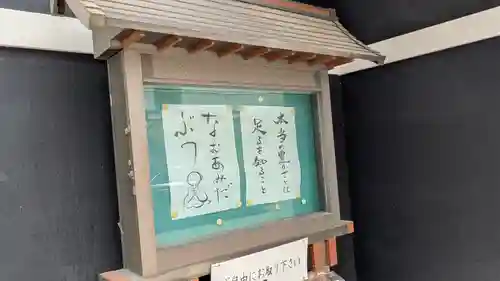 本当の豊かさとは
足るを知ること
なむあみだ
ぶつ
にお取り下さい